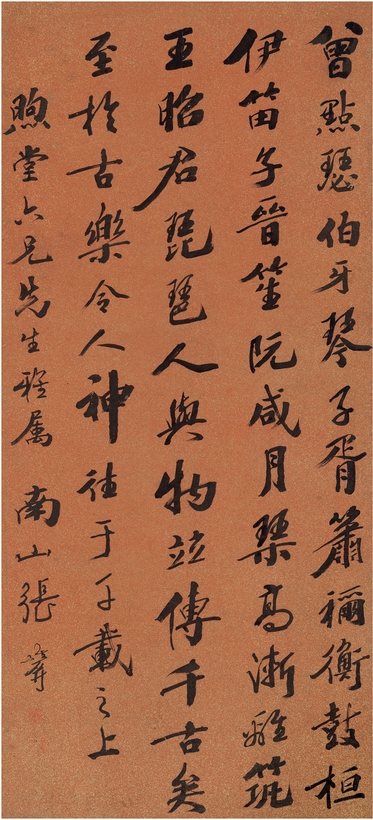 曾點瑟伯牙琴子胥簫禰衡鼓桓
伊笛子晉笙阮咸月琴高漸離筑
王昭君琵琶人與物竝傳千古矣
至於古樂令人神往于千載之上
煦堂六兄先生雅属 南山張